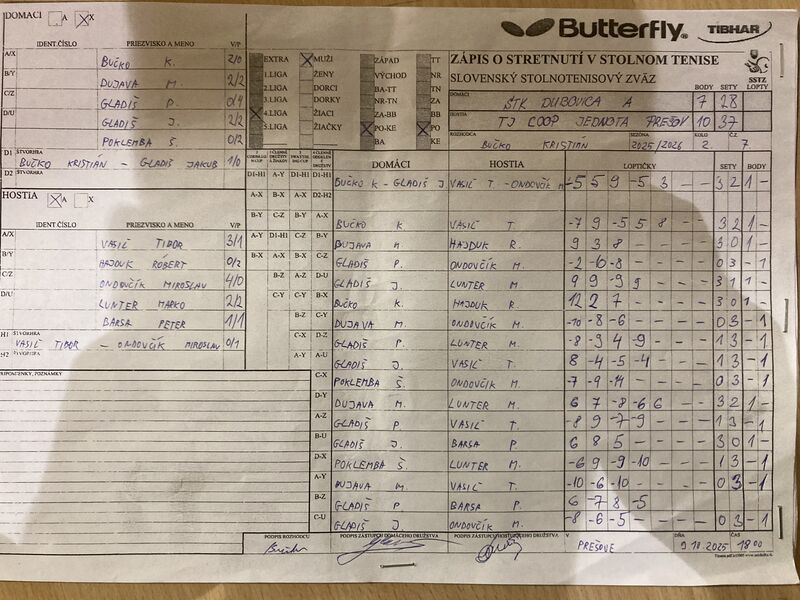 DOMACI A X
IDENT.ČÍSLO PRIEZVISKO A MENO V/P
A/X BUČKO K. 2/0
B/Y DUJAVA M. 2/2
C/Z GLADIŠ P. 0/4
D/U GLADIŠ J. 2/2
POKLEMBA Š. 0/2
D1 ŠTVORHRA
BUČKO KRISTIÁN - GLADIŠ JAKUB 1/0
D2 ŠTVORHRA
HOSTIA A X
IDENT.ČÍSLO PRIEZVISKO A MENO V/P
A/X VASIĽ TIBOR 3/1
B/Y HAJDUK RÓBERT 0/2
C/Z ONDOVČÍK MIROSLAV 4/0
D/U LUNTER MARKO 2/2
BARSA PETER 1/1
H1 ŠTVORHRA
VASIĽ TIBOR - ONDOVČÍK MIROSLAV 0/1
H2 ŠTVORHRA
PRIPOMIENKY, POZNÁMKY
Butterfly TIBHAR
EXTRA MUŽI ZÁPAD TT
1.LIGA ŽENY VÝCHOD NR
2.LIGA DORCI BA-TT TN
3.LIGA DORKY NR-TN ZA
4.LIGA ŽIACI ZA-BB BB
5.LIGA ŽIAČKY PO-KE PO
BA KE
ZÁPIS O STRETNUTÍ V STOLNOM TENISE
SLOVENSKÝ STOLNOTENISOVÝ ZVÄZ
SSTZ
BODY SETY LOPTY
DOMÁCI ŠTK DUBOVICA A 7 28
HOSTIA TJ COOP JEDNOTA PREŠOV 10 37
ROZHODCA BUČKO KRISTIÁN SEZÓNA 2025/2026 KOLO 2. Č.Z. 7
DOMÁCI HOSTIA LOPTIČKY SETY BODY
D1-H1 A-Y D1-H1 D1-H1 BUČKO K - GLADIŠ J VASIĽ T - ONDOVČÍK M -5 5 9 -5 3 - - 3 2 1 -
A-X B-X A-X D2-H2
B-Y C-Z B-Y A-X BUČKO K VASIĽ T. -7 9 -5 5 8 - - 3 2 1 -
A-Y D1-H1 C-Z B-Y DUJAVA M HAJDUK R. 9 3 8 - - - - 3 0 1 -
B-X A-X B-X C-Z GLADIŠ P. ONDOVČÍK M. -2 -6 -8 - - - - 0 3 - 1
B-Z A-Z D-U GLADIŠ J. LUNTER M. 9 9 -9 9 - - - 3 1 1 -
C-Y C-Y B-X BUČKO K. HAJDUK R. 12 2 7 - - - - 3 0 1 -
B-Z C-Y DUJAVA M. ONDOVČÍK M. -10 -8 -6 - - - - 0 3 - 1
C-X D-Z GLADIŠ P. LUNTER M. -8 -3 4 -9 - - - 1 3 - 1
A-Y A-U GLADIŠ J. VASIĽ T. 8 -4 -5 -4 - - - 1 3 - 1
C-X POKLEMBA Š. ONDOVČÍK M. -7 -9 -14 - - - - 0 3 - 1
D-Y DUJAVA M. LUNTER M. 6 7 -8 -6 6 - - 3 2 1 -
A-Z GLADIŠ P VASIĽ T. -8 9 -7 -9 - - - 1 3 - 1
B-U GLADIŠ J. BARSA P. 6 8 5 - - - - 3 0 1 -
D-X POKLEMBA Š. LUNTER M. -6 9 -9 -10 - - - 1 3 - 1
A-Y DUJAVA M. VASIĽ T -10 -6 -10 - - - - 0 3 - 1
B-Z GLADIŠ P BARSA P. 6 -7 8 -5
C-U GLADIŠ J. ONDOVČÍK M. -8 -6 -5 - - - - 0 3 - 1
PODPIS ROZHODCU PODPIS ZÁSTUPCU DOMÁCEHO DRUŽSTVA PODPIS ZÁSTUPCU HOSŤUJÚCEHO DRUŽSTVA V PREŠOVE DŇA 9.10.2025 ČAS 18 00